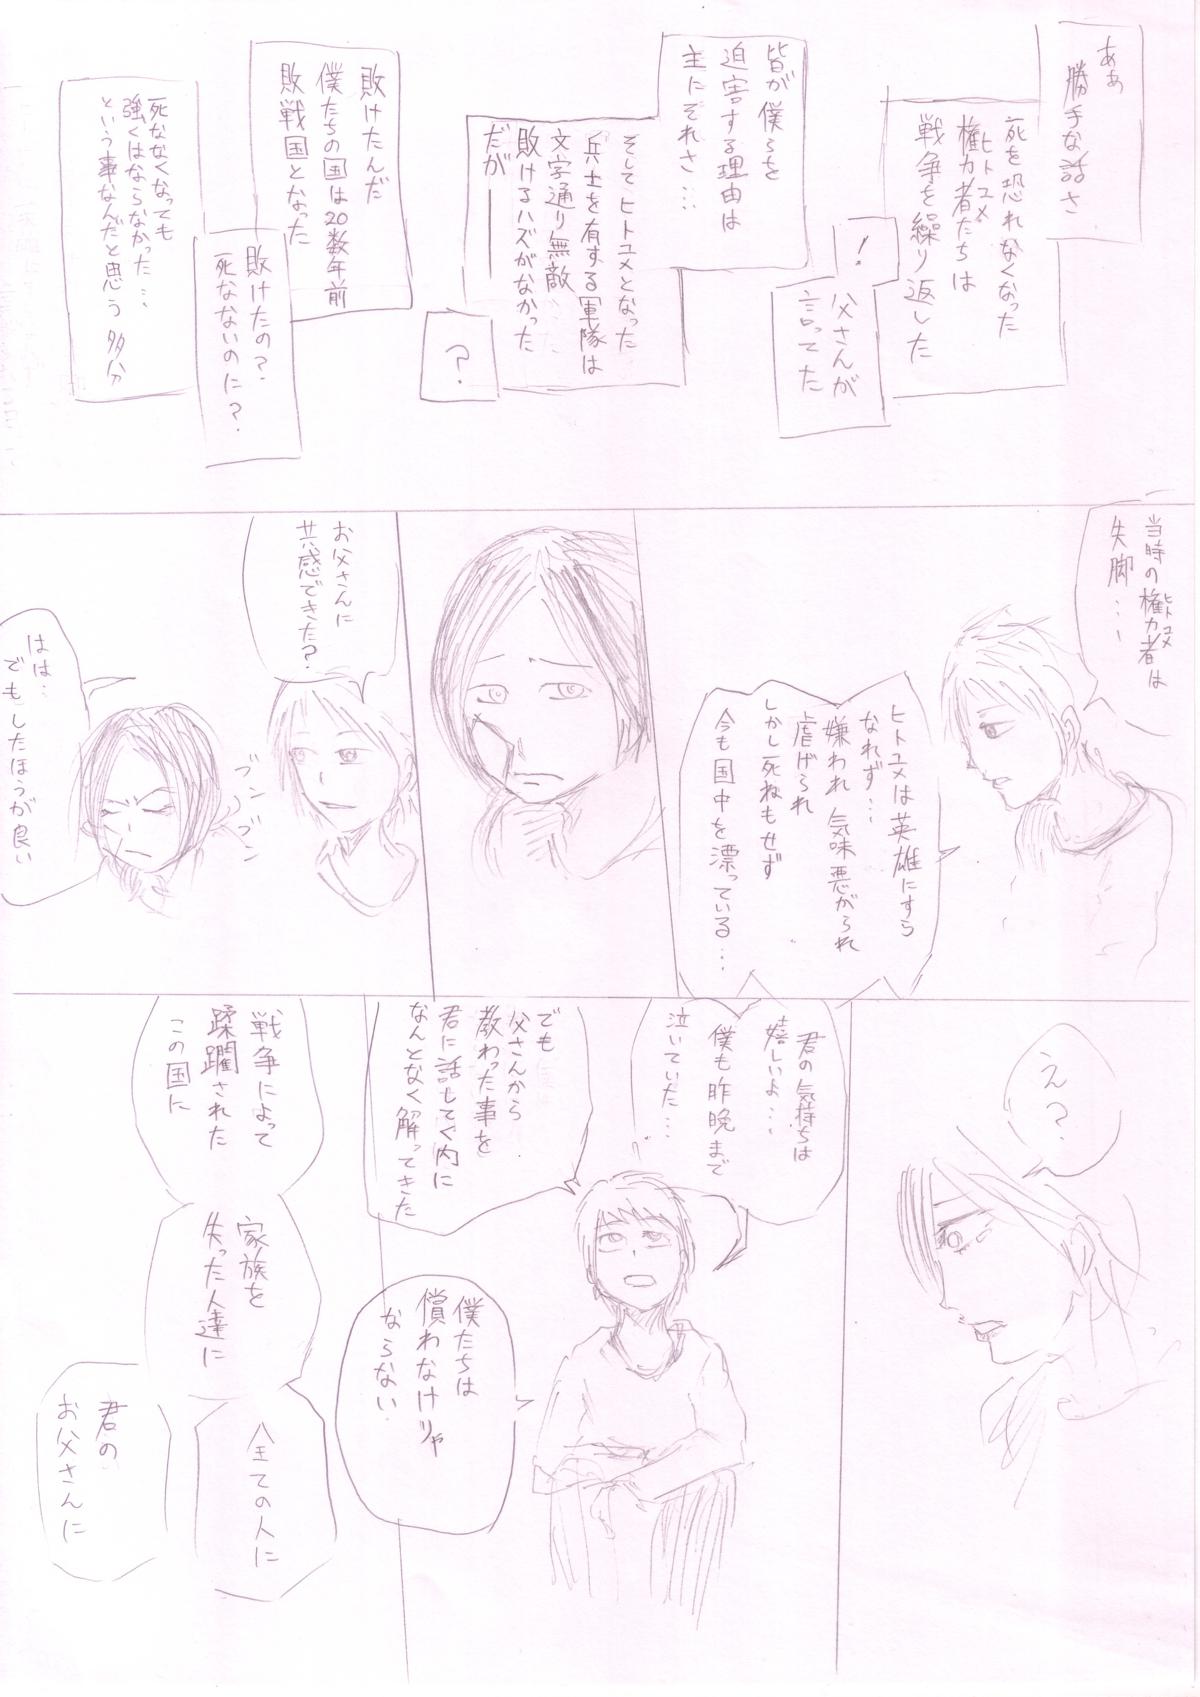 ああ
勝手な話さ
死を恐れなくなった
権力者たちは
ヒトユメ
戦争を繰り返した
！
父さんが
言ってた
皆が僕らを
迫害する理由は
主にそれさ…
そしてヒトユメとなった
兵士を有する軍隊は
文字通り無敵
敗けるハズがなかった
だが――
？
敗けたんだ
僕たちの国は20数年前
敗戦国となった
敗けたの？
死なないのに？
死ななくなっても
強くはならなかった…
という事なんだと思う 多分
当時の権力者は
ヒトユメ
失脚…
ヒトユメは英雄にすら
なれず…
嫌われ 気味悪がられ
虐げられ
しかし死ねもせず
今も国中を漂っている…
お父さんに
共感できた？
ブン
ブン
はは…
でもしたほうが良い
え？
君の気持ちは
嬉しいよ…
僕も昨晩まで
泣いていた…
でも
父さんから
教わった事を
君に話してく内に
なんとなく解ってきた
僕たちは
償わなけりゃ
ならない
戦争によって
蹂躙された
この国に
家族を
失った人達に
全ての人に
君の
お父さんに